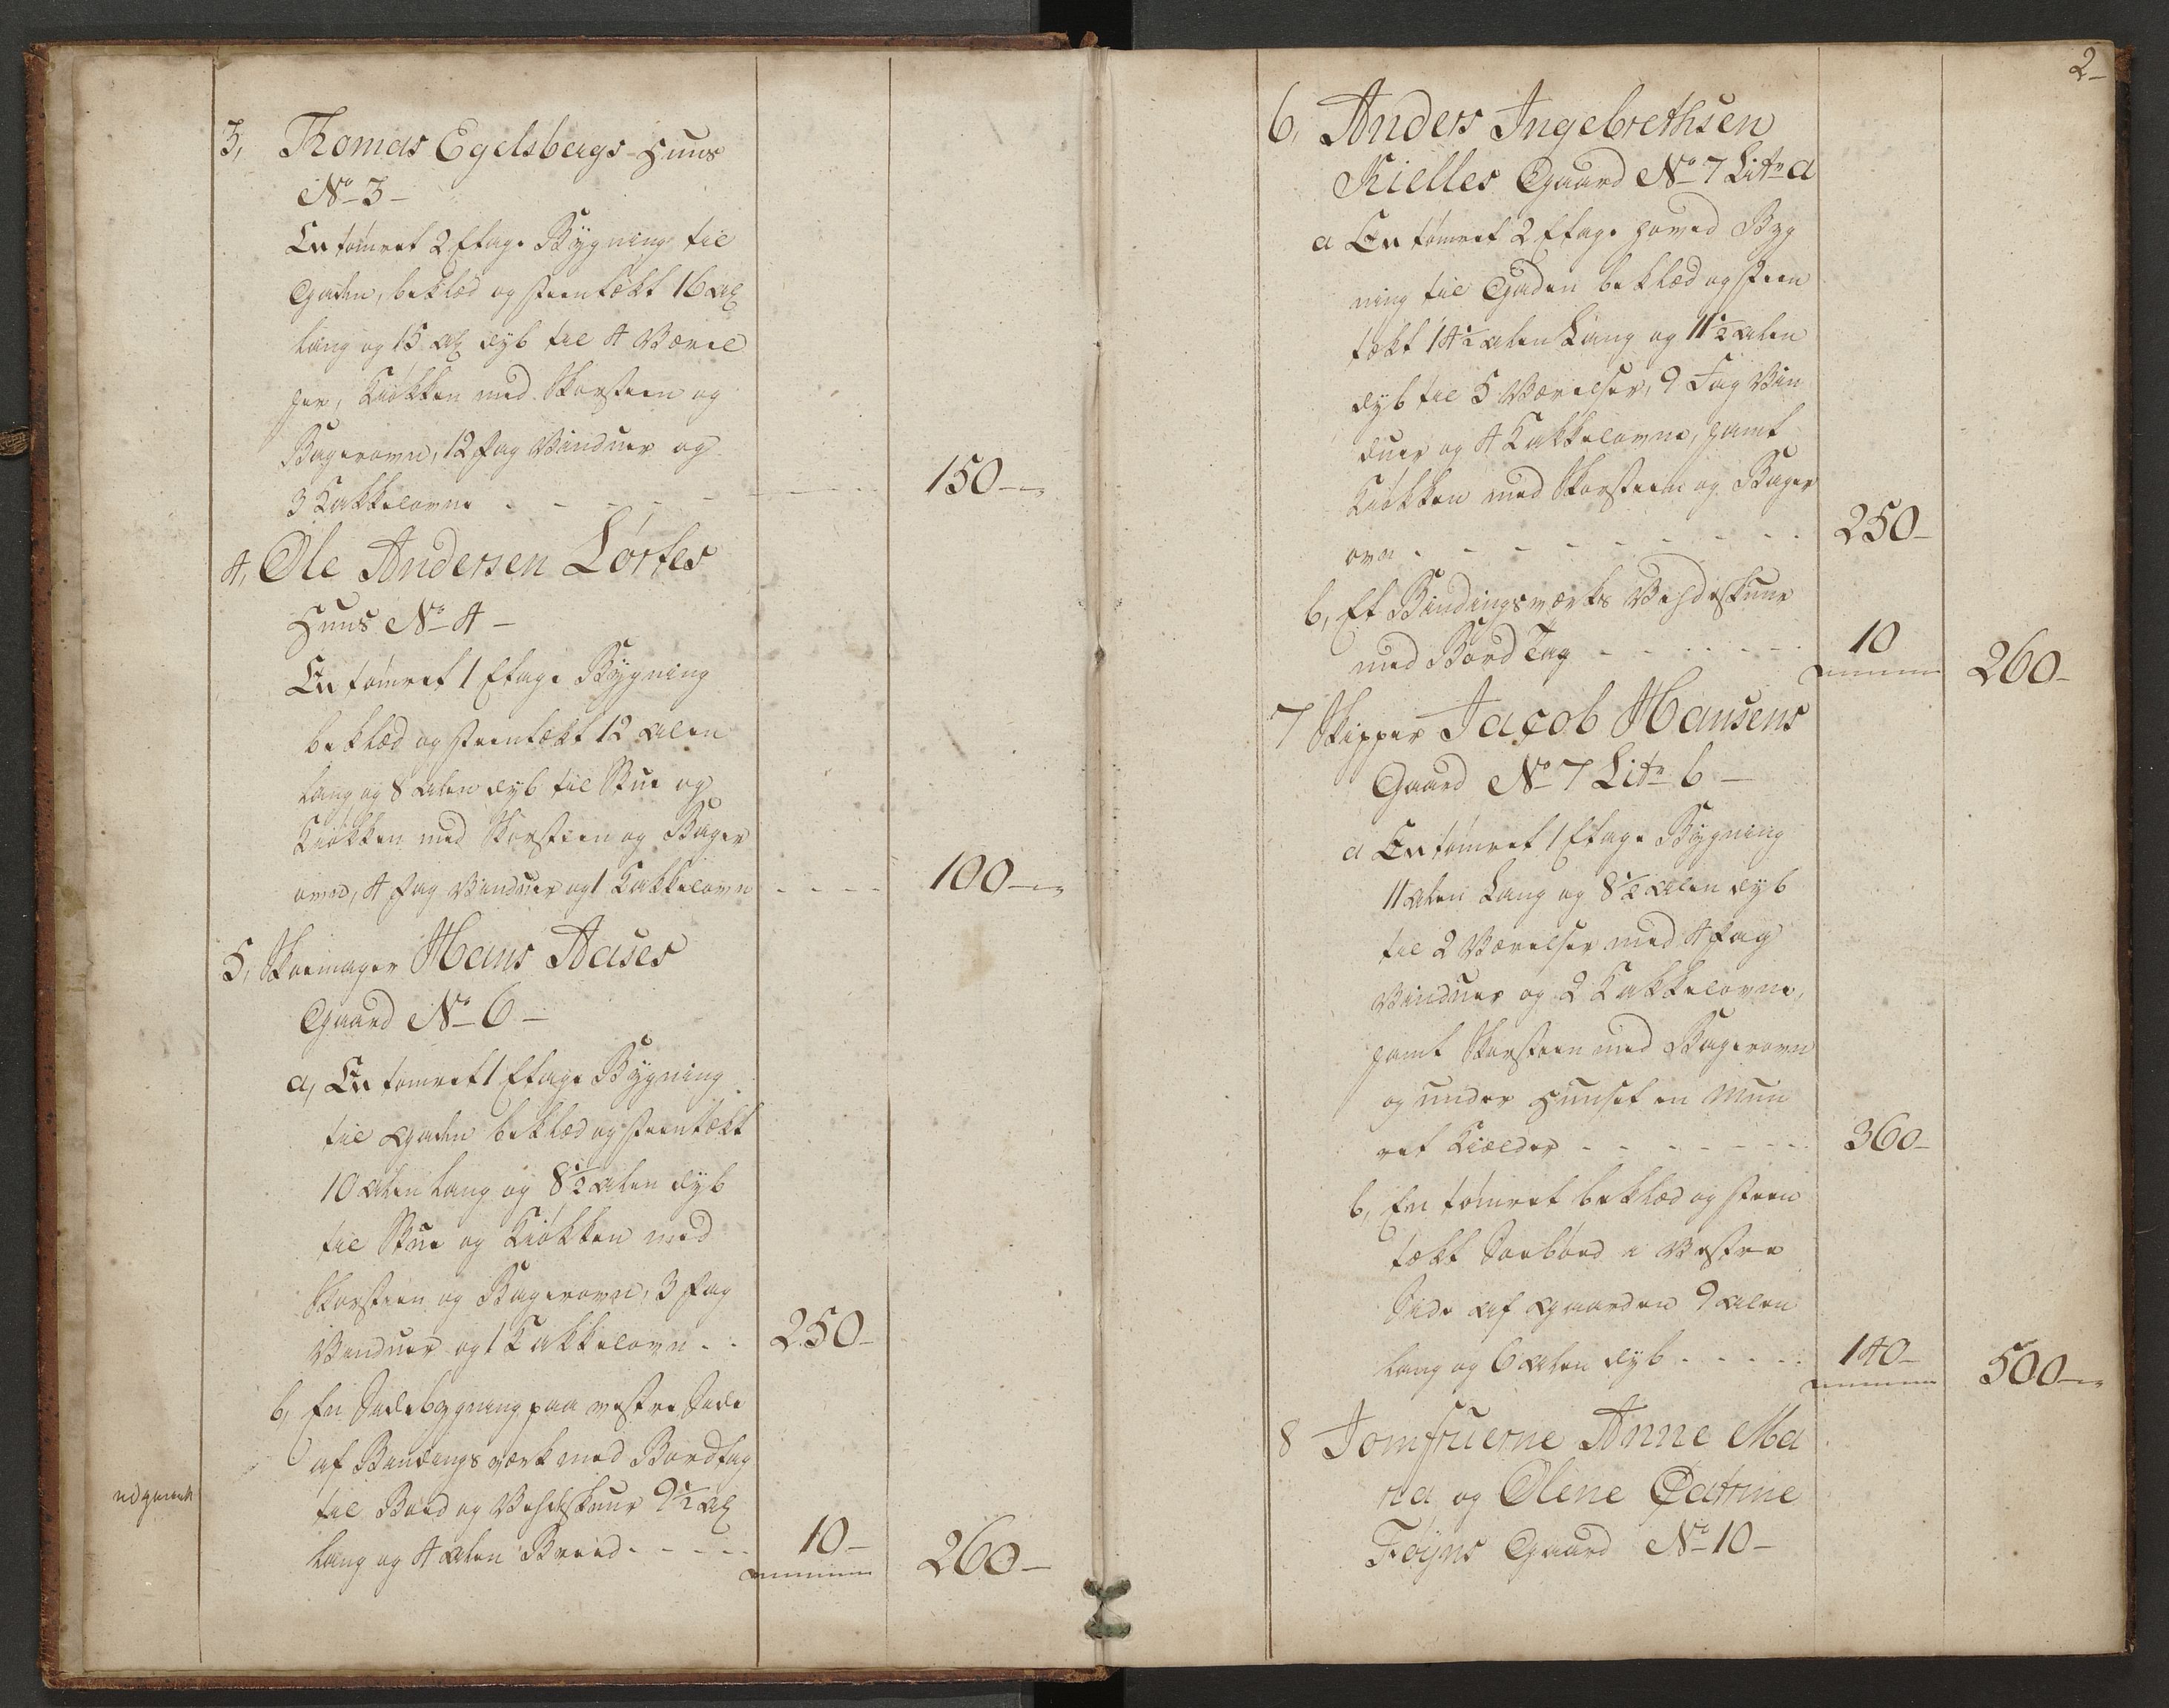 3, Thomas Egelsbergs Huus
No 3 –
En tømret 2 Etage Bygning til
Gaden, beklæd og steentækt 16 Al
lang og 15 Al dyb til 4 Værel
ser, Kiøkken med Skorsteen og
Bagerovn, 12 fag Vinduer og
3 Kakkelovne - - - - - - - 150 –
4, Ole Andersen Lørfes
Huus No 4 –
En tømret 1 Etage Bygning
beklæd og steentækt 12 Alen
lang og 8 Alen dyb til Stue og
Kiøkken med Skorsteen og Bager
ovn, 4 fag Vinduer og 1 Kakkelovn - - - - 100 –
5, Skoemager Hans Aases
Gaard No 6 –
a, En tømret 1 Etage Bygning
til Gaden beklæd og steentækt
10 Alen lang og 8½ Alen dyb
til Stue og Kiøkken med
Skorsteen og Bagerovn, 3 fag
Vinduer og 1 Kakkelovn - - 250 –
b, En Sidebygning paa vestre Side
af Bindingsværk med Bordtag
til Bod og Vedskuur 9½ Al
lang og 4 Alen Breed - - - - 10 – 260 –
udgaaet
2 –
6, Anders Ingebrethsen
Kielles Gaard No 7 Litr a
a En tømret 2 Etage Hoved Byg
ning til Gaden beklæd og steen
tækt 14½ Alen Lang og 11½ Alen
dyb til 5 Værelser, 9 Fag Vin
duer og 4 Kakkelovne, samt
Kiøkken med Skorsteen og Bager
ovn - - - - - - - - - 250 –
b, Et Bindingsværks Vedskuur
med Bord Tag - - - - - - 10 260 –
7 Skipper Jacob Hansens
Gaard No 7 Litr b –
a En tømret 1 Etage Bygning
11 Alen Lang og 8½ Alen dyb
til 2 Værelser med 4 fag
Vinduer og 2 Kakkelovne,
samt Skorsteen med Bagerovn
og under Huuset en Muu
ret Kielder - - - - - - - 360 –
b, En tømret beklæd og steen
tækt Søebod i Vestre
Side af Gaarden 9 Alen
lang og 6 Alen dyb - - - - - 140 – 500 –
8 Jomfruerne Anne Ma
ria og Olene Catrine
Føyns Gaard No 10 –